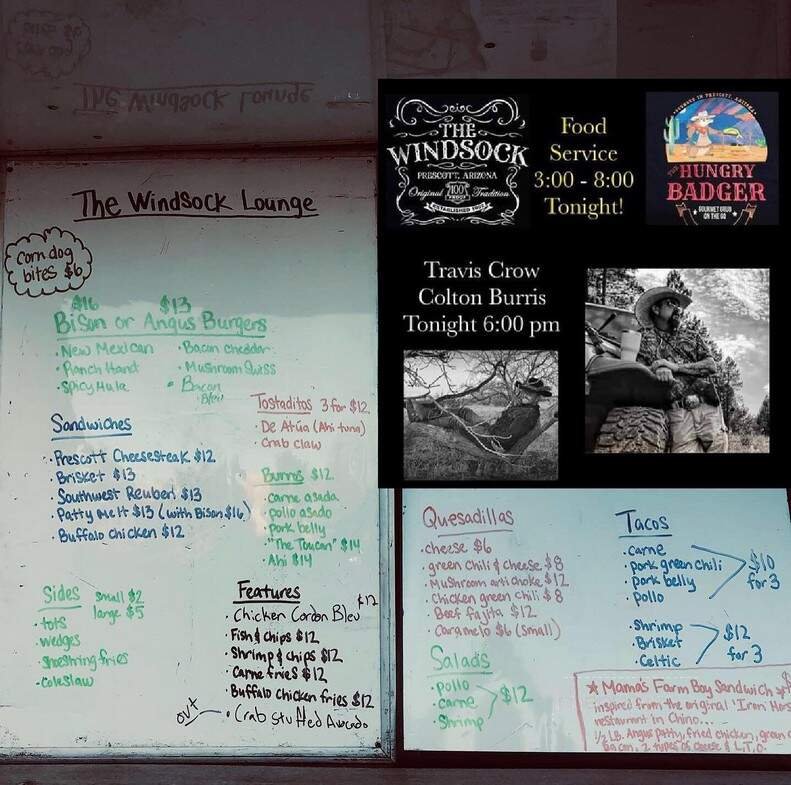 The Windsock Lounge
corn dog
bites $6
$16 $13
Bison or Angus Burgers
• New Mexican
• Ranch Hand
• Spicy Hula
• Bacon cheddar
• Mushroom Swiss
• Bacon
Bleu
Sandwiches
• Prescott Cheesesteak $12
• Brisket $13
• Southwest Reuben $13
• Patty Melt $13 (with Bison $16)
• Buffalo chicken $12
Tostaditos 3 for $12
• De Atúa (Ahi tuna)
• Crab claw
Burros $12
• carne asada
• pollo asado
• pork belly
• "The Toucan" $14
• Ahi $14
Sides small $2
large $5
• tots
• wedges
• shoestring fries
• coleslaw
Features
• Chicken Cordon Bleu $12
• Fish & chips $12
• Shrimp & chips $12
• Carne fries $12
• Buffalo Chicken fries $12
out • Crab Stuffed Avocado
THE
WINDSOCK
PRESCOTT, ARIZONA
Original 100 PROOF Tradition
Food
Service
3:00 - 8:00
Tonight!
THE
HUNGRY
BADGER
GOURMET GRUB
ON THE GO
Travis Crow
Colton Burris
Tonight 6:00 pm
Quesadillas
• cheese $6
• green Chili & Cheese $8
• Mushroom artichoke $12
• Chicken green chili $8
• Beef fajita $12
• Caramelo $6 (small)
Salads
• pollo
• carne
• Shrimp
$12
Tacos
• carne
• pork green chili
• pork belly
• pollo
$10
for 3
• Shrimp
• Brisket
• Celtic
$12
for 3
★ Mama's Farm Boy Sandwich
inspired from the original "Iron Hors
restaurant in Chino...
1/2 LB. Angus patty, fried chicken, green
bacon, 2 types of cheese & L.T.O.